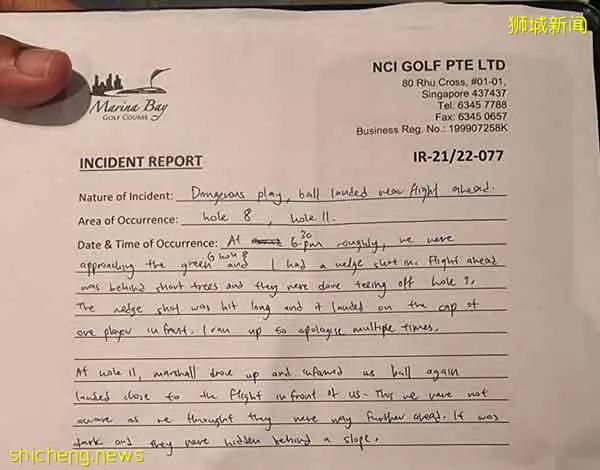 狮城新闻
Marina Bay
GOLF COURSE
NCI GOLF PTE LTD
80 Rhu Cross, #01-01,
Singapore 437437
Tel: 6345 7788
Fax: 6345 0657
Business Reg. No.: 199907258K
INCIDENT REPORT
IR-21/22-077
Nature of Incident: Dangerous play, ball landed near flight ahead.
Area of Occurrence: hole 8, hole 11.
Date & Time of Occurrence: At 6.30pm roughly, we were
approaching the green @ hole 8 and I had a wedge shot in. Flight ahead
was behind short trees and they were done teeing off hole 9.
The wedge shot was hit long and it landed on the cap of
one player in front. I ran up to apologise multiple times.
At hole 11, marshall drove up and informed us ball again
landed close to the flight in front of us. This we were not
aware as we thought they were way further ahead. It was
dark and they were hidden behind a slope.
shicheng.news